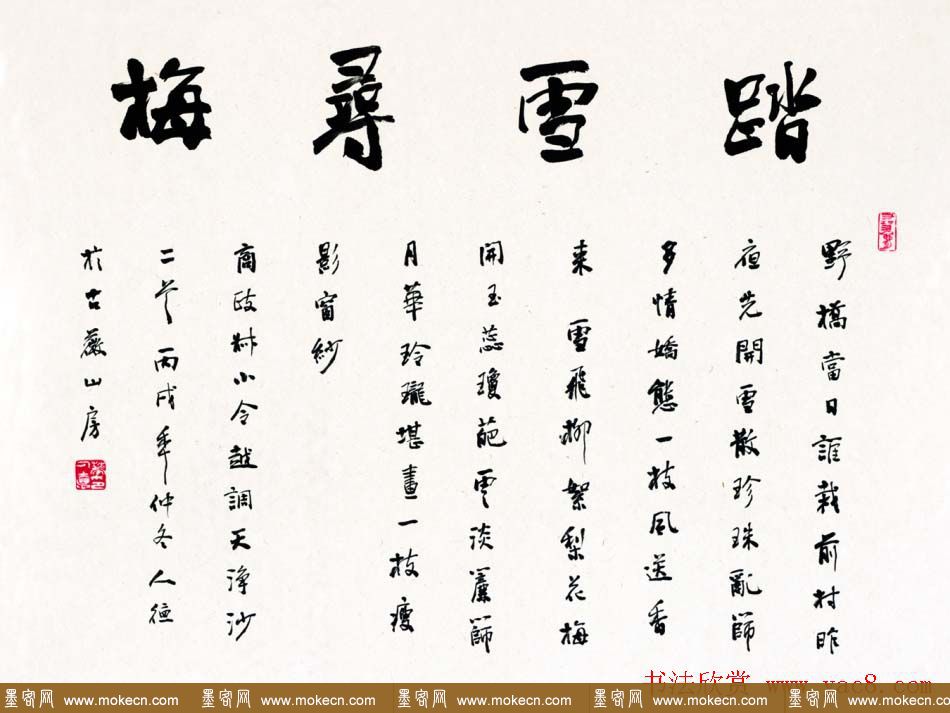 踏雪尋梅
野橋當日誰栽前村昨
夜先開雪散珍珠亂篩
多情嬌態一枝風送香
來 雪飛柳絮梨花梅
開玉蕊瓊葩雲淡簾篩
月華玲瓏堪畫一枝瘦
影窗紗
商政叔小令越調天淨沙
二首 丙戌年仲冬人德
於古巖山房
书法欣赏 www.yac8.com
墨客网 www.mokecn.com 墨客网 www.mokecn.com 墨客网 www.mokecn.com 墨客网 www.mokecn.com 墨客网 www.mokecn.com